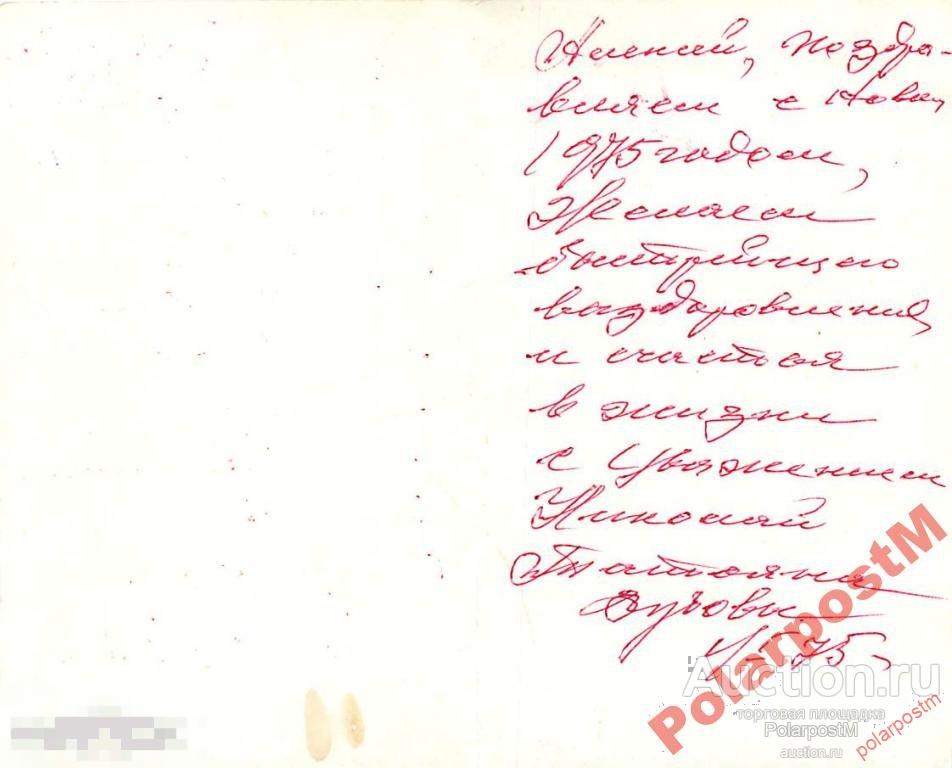 поздра-
вляем с Новым
1975 годом,
Желаем
быстрейшего
выздоровления,
и счастья
в жизни
с Уважением
Николай
Татьяна
75
PolarpostM
Auction.ru
торговая площадка
PolarpostM
auction.ru
polarpostm